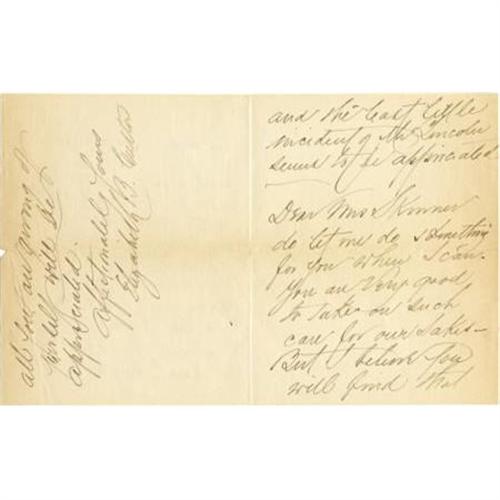 and the least little
incident of Mr Lincoln
seems to be appreciated.
Dear Mrs Skinner
do let me do something
for you when I can.
You are very good
to take on such
care for our sakes—
But I believe you
will find that
all you are
will be
appreciated.
Affectionately Yours
Elizabeth B. Custer